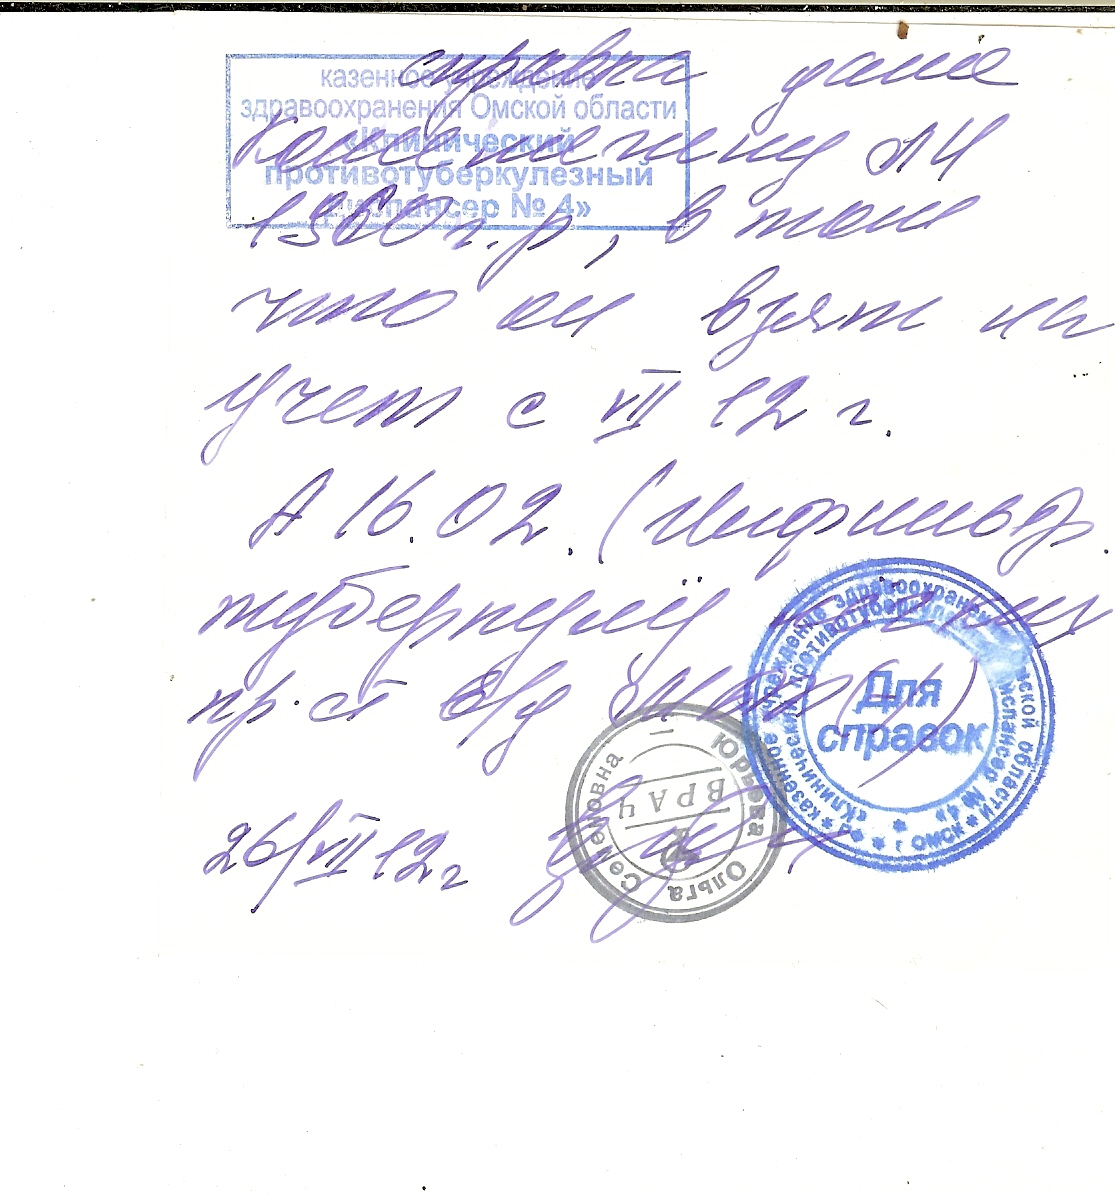 казенное учреждение
здравоохранения Омской области
«Клинический
противотуберкулезный
диспансер № 4»
справка дана
А Ч
1960 г.р, в том
что он взят на
учет с VII 12 г.
А 16.02. (Инфильтр.
туберкулёз
пр. ст
26/VII 12 г
ВРАЧ
Юрьева Ольга Семеновна
казенное учреждение здравоохранения Омской области * г Омск * РФ *
«Клинический противотуберкулезный диспансер № 4» *
Для
справок